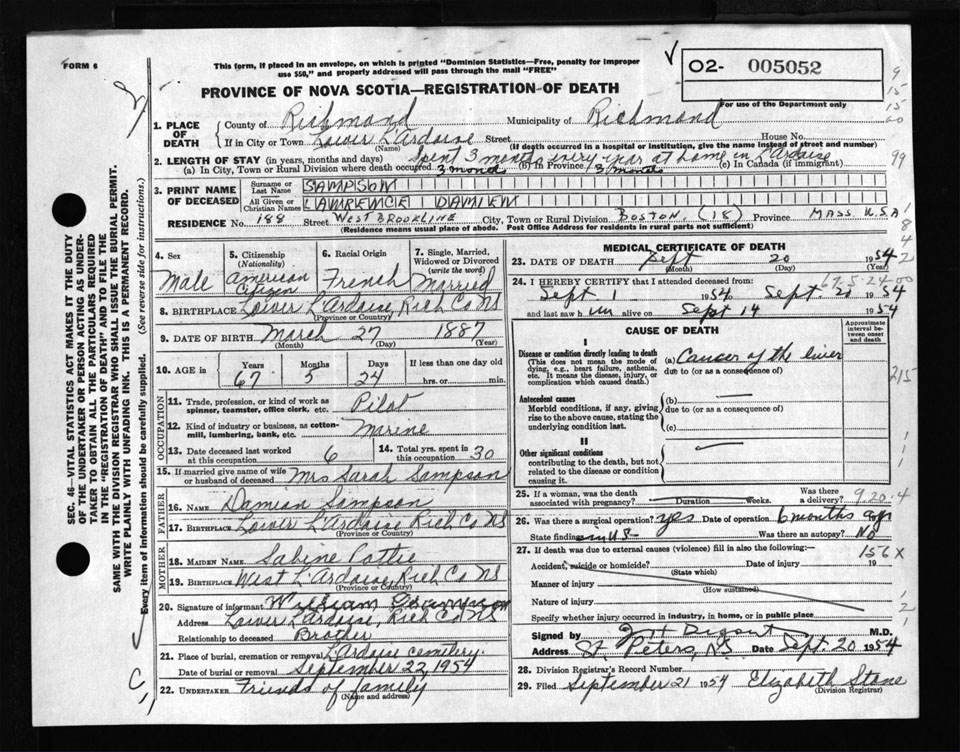 FORM 6
This form, if placed in an envelope, on which is printed "Dominion Statistics—Free, penalty for improper
use $50," and properly addressed will pass through the mail "FREE"
O2- 005052
For use of the Department only
PROVINCE OF NOVA SCOTIA—REGISTRATION OF DEATH
1. PLACE OF DEATH
County of Richmond Municipality of Richmond
If in City or Town Lower L'Ardoise Street House No.
(Name) (If death occurred in a hospital or institution, give the name instead of street and number)
2. LENGTH OF STAY (in years, months and days) Spent 3 months every year at home in L'Ardoise
(a) In City, Town or Rural Division where death occurred 3 months (b) Province 3 months (c) In Canada (if immigrant)
3. PRINT NAME OF DECEASED
Surname or Last Name SAMPSON
All Given or Christian Names LAWRENCE DAMIEN
RESIDENCE No. 188 Street WEST BROOKLINE City, Town or Rural Division BOSTON, (18) Province MASS. U.S.A
(Residence means usual place of abode. Post Office Address for residents in rural parts not sufficient)
4. Sex
Male
5. Citizenship (Nationality)
American Citizen
6. Racial Origin
French
7. Single, Married, Widowed or Divorced (write the word)
Married
8. BIRTHPLACE Lower L'Ardoise, Rich Co NS
(Province or Country)
9. DATE OF BIRTH March 27 1887
(Month) (Day) (Year)
10. AGE in
Years 67
Months 5
Days 24
If less than one day old
hrs. or min.
OCCUPATION
11. Trade, profession, or kind of work as spinner, teamster, office clerk, etc. Pilot
12. Kind of industry or business, as cotton-mill, lumbering, bank, etc. Marine
13. Date deceased last worked at this occupation 6
14. Total yrs. spent in this occupation 30
15. If married give name of wife or husband of deceased Mrs Sarah Sampson
FATHER
16. NAME Damien Sampson
17. BIRTHPLACE Lower L'Ardoise Rich Co NS
(Province or Country)
MOTHER
18. MAIDEN NAME Sabine Pottie
19. BIRTHPLACE West L'Ardoise, Rich Co NS
(Province or Country)
20. Signature of informant William Sampson
Address Lower L'Ardoise, Rich Co NS
Relationship to deceased Brother
21. Place of burial, cremation or removal L'Ardoise cemetery.
Date of burial or removal September 22, 1954
22. UNDERTAKER Friends of family
(Name and address)
MEDICAL CERTIFICATE OF DEATH
23. DATE OF DEATH Sept 20 1954
(Month) (Day) (Year)
24. I HEREBY CERTIFY that I attended deceased from:
Sept 1 1954 Sept 20 1954
and last saw him alive on Sept 14 1954
CAUSE OF DEATH
Approximate interval between onset and death
I
Disease or condition directly leading to death
(This does not mean the mode of dying, e.g., heart failure, asthenia, etc. It means the disease, injury, or complication which caused death.)
(a) Cancer of the liver
due to (or as a consequence of)
Antecedent causes
Morbid conditions, if any, giving rise to the above cause, stating the underlying condition last.
(b)
due to (or as a consequence of)
(c)
II
Other significant conditions
contributing to the death, but not related to the disease or condition causing it.
25. If a woman, was the death associated with pregnancy? Duration Weeks. Was there a delivery?
9.20.4
26. Was there a surgical operation? yes Date of operation 6 months ago
State findings Was there an autopsy? No
27. If death was due to external causes (violence) fill in also the following:—
156 X
Accident, suicide or homicide? Date of injury 19
(State which)
Manner of injury
(How sustained)
Nature of injury
Specify whether injury occurred in industry, in home, or in public place
Signed by M.D.
Address St Peters, NS Date Sept. 20 1954
28. Division Registrar's Record Number
29. Filed September 21 1954 Elizabeth Stone
(Division Registrar)
SEC. 46—VITAL STATISTICS ACT MAKES IT THE DUTY
OF THE UNDERTAKER OR PERSON ACTING AS UNDER-
TAKER TO OBTAIN ALL THE PARTICULARS REQUIRED
IN THE "REGISTRATION OF DEATH" AND TO FILE THE
SAME WITH THE DIVISION REGISTRAR WHO SHALL ISSUE THE BURIAL PERMIT.
WRITE PLAINLY WITH UNFADING INK. THIS IS A PERMANENT RECORD.
Every item of information should be carefully supplied. (See reverse side for instructions.)